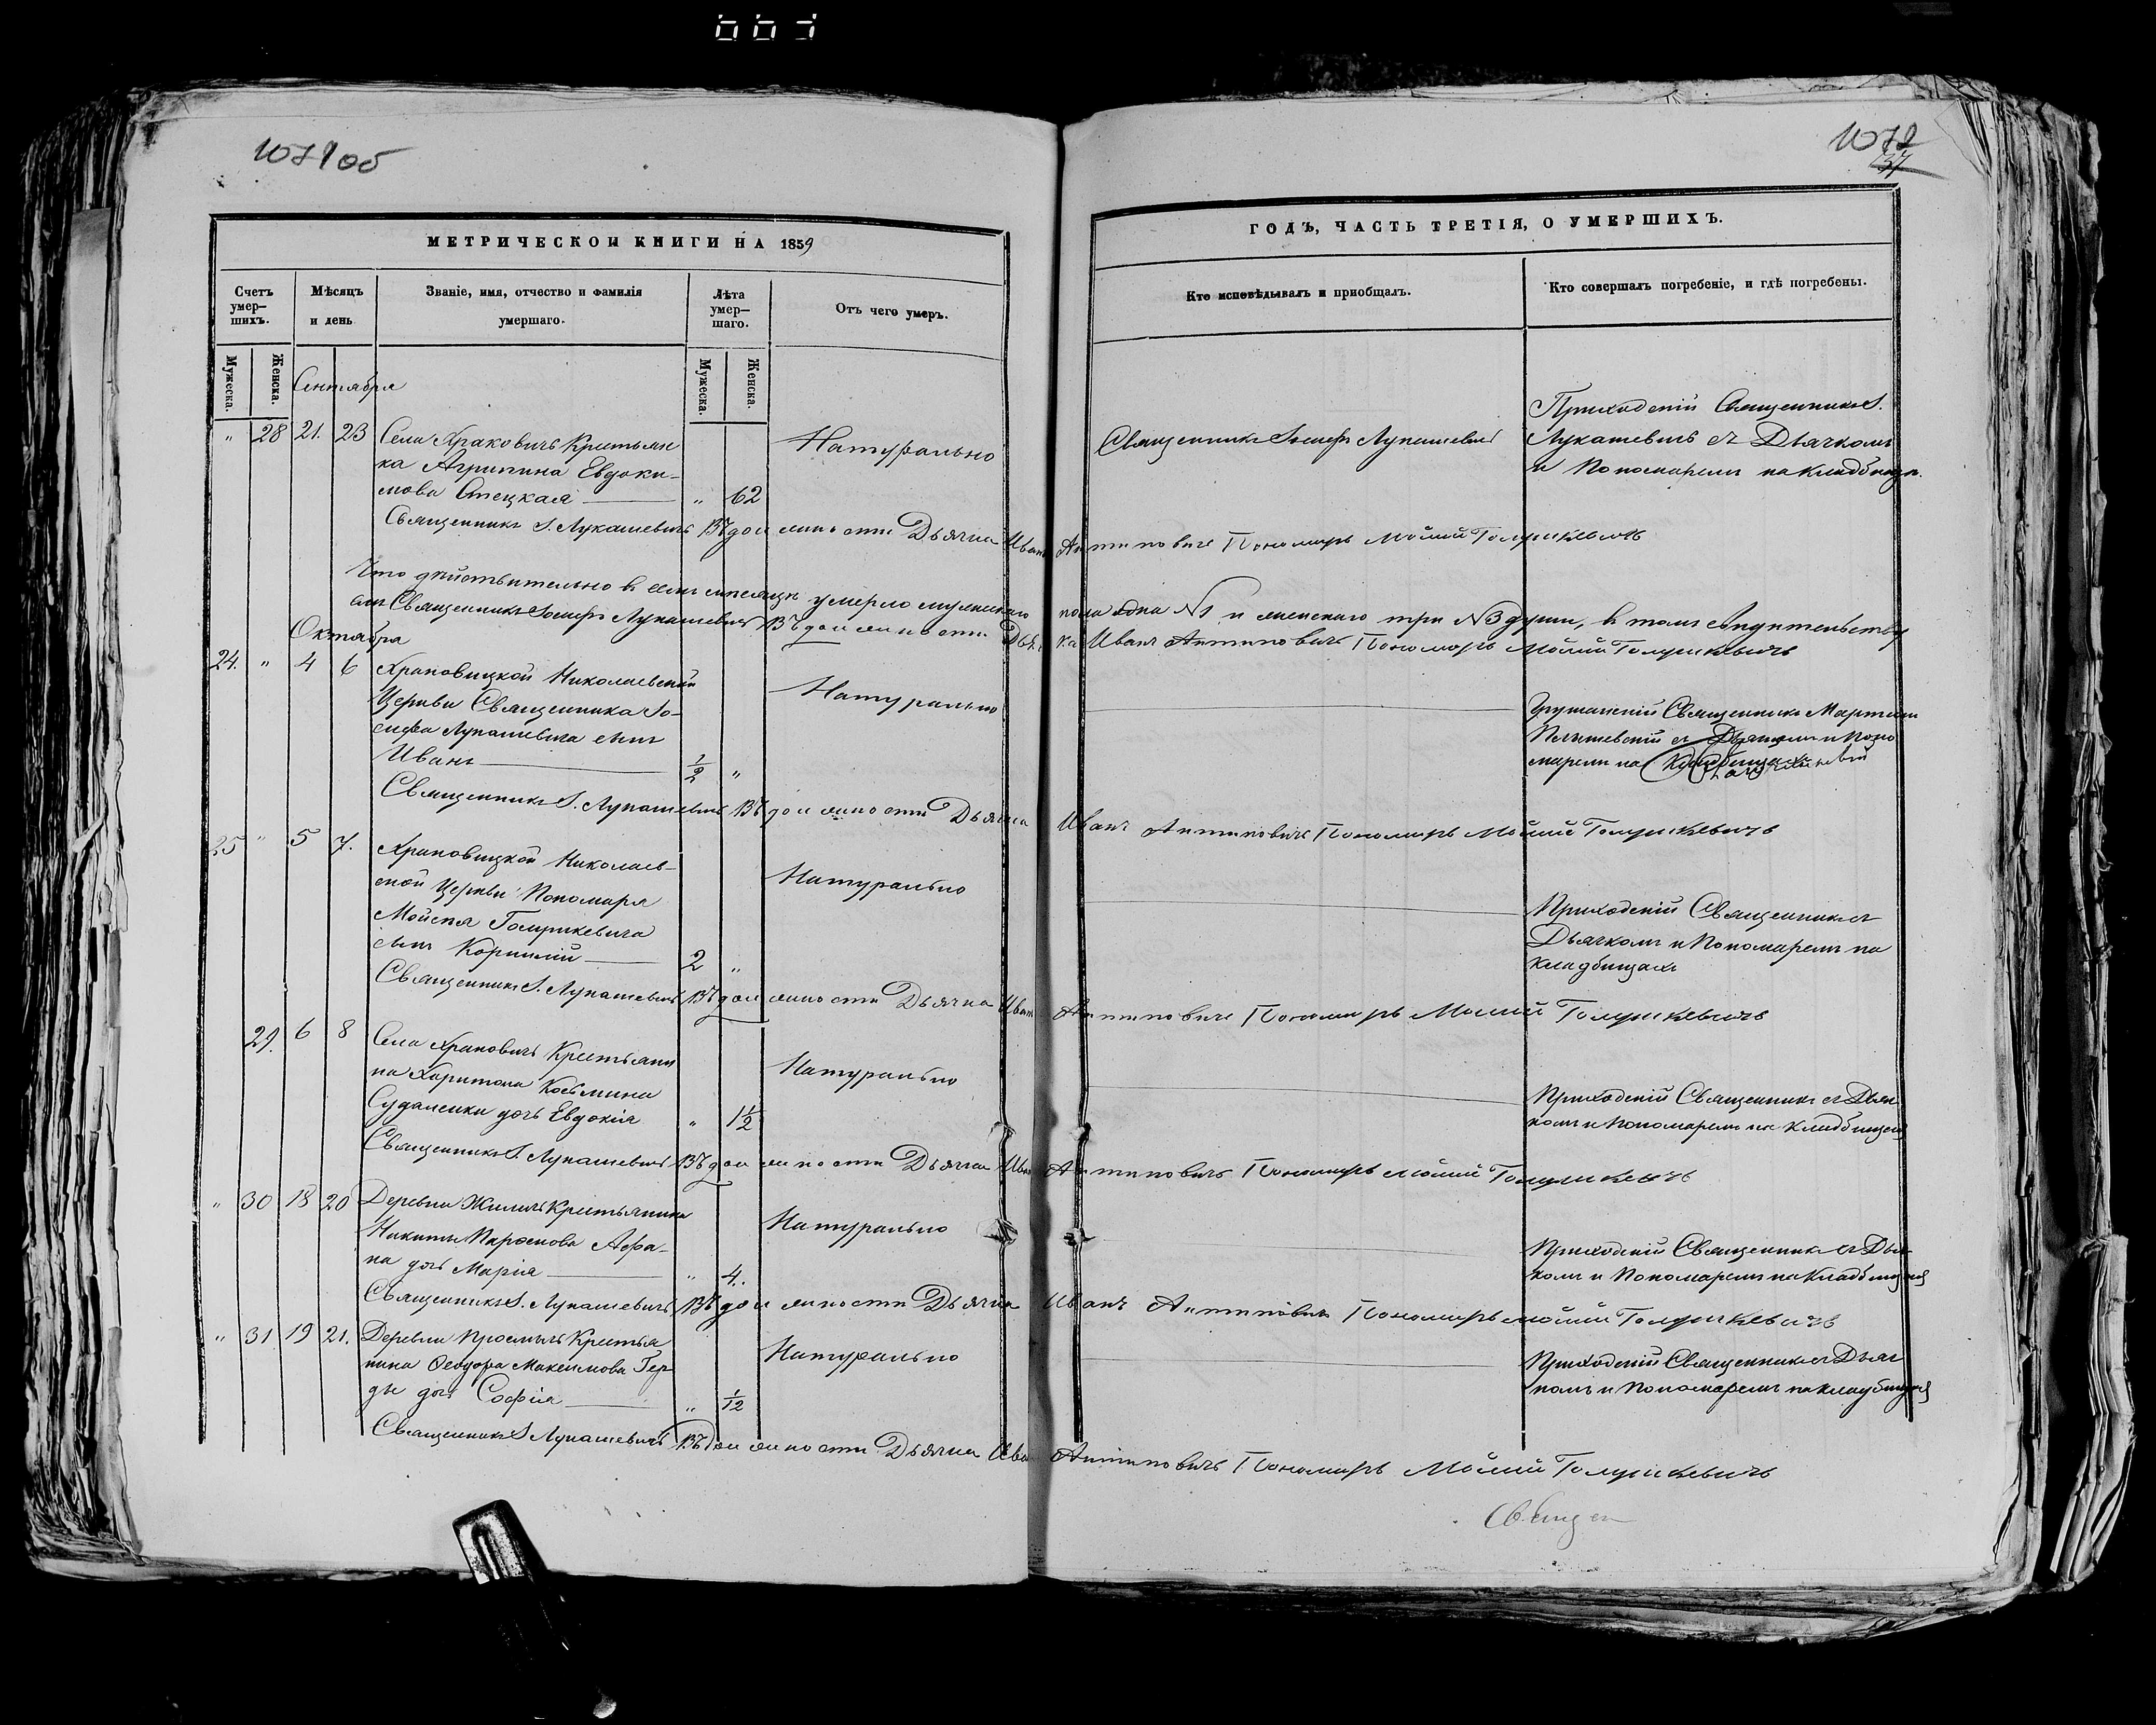 1071 об
1072
137
МЕТРИЧЕСКОЙ КНИГИ НА 1859
ГОДЪ, ЧАСТЬ ТРЕТІЯ, О УМЕРШИХЪ.
Счетъ умер-шихъ.
Мѣсяцъ и день
Званіе, имя, отчество и фамилія умершаго.
Лѣта умер-шаго.
Отъ чего умеръ.
Кто исповѣдывалъ и приобщалъ.
Кто совершалъ погребеніе, и гдѣ погребены.
Мужеска.
Женска.
Мужеска.
Женска.
Сентября
" 28 21. 23 Села Храковичъ Крестьян
ка Агрипина Евдоки-
мова Стецкая " 62
Натурально
Священникъ Іосифъ Лукашевичъ
Приходскій Священникъ І.
Лукашевичъ съ Дьячкомъ
и Пономаремъ на кладбищѣ.
Священникъ І. Лукашевичъ Въ должности Дьячка Иванъ Антиповичъ Пономарь Мойсій Голушкевичъ
Что дѣйствительно въ семъ мѣсяцѣ умерло мужескаго пола одна №1 и женскаго три №3 души, въ томъ свидѣтельству
емъ Священникъ Іосифъ Лукашевичъ Въ должности Дьячка Иванъ Антиповичъ Пономарь Мойсій Голушкевичъ
Октября
24. " 4 6 Храковицкой Николаевской
Церкви Священника Іо-
сифа Лукашевича сынъ
Иванъ 1/2 "
Натурально
Священникъ Мартинъ
съ Дьячкомъ и Поно
маремъ на
Священникъ І. Лукашевичъ Въ должности Дьячка Иванъ Антиповичъ Пономарь Мойсій Голушкевичъ
25 " 5 7. Храковицкой Николаев-
ской Церкви Пономаря
Мойсея Голушкевича
сынъ Корнилій 2 "
Натурально
Приходскій Священникъ съ
Дьячкомъ и Пономаремъ на
кладбищахъ
Священникъ І. Лукашевичъ Въ должности Дьячка Иванъ Антиповичъ Пономарь Мойсій Голушкевичъ
29. 6 8 Села Храковичъ Крестьяни
на Харитона Косьмина
Судаленки дочь Евдокія " 1 1/2
Натурально
Приходскій Священникъ съ Дьяч
комъ и Пономаремъ на кладбищахъ
Священникъ І. Лукашевичъ Въ должности Дьячка Иванъ Антиповичъ Пономарь Мойсій Голушкевичъ
" 30 18 20 Деревни Жиличъ Крестьянина
Никиты Парфенова
дочь Марія " 4.
Натурально
Приходскій Священникъ съ Дьяч
комъ и Пономаремъ на кладбищахъ
Священникъ І. Лукашевичъ Въ должности Дьячка Иванъ Антиповичъ Пономарь Мойсій Голушкевичъ
" 31 19 21. Деревни Крестья
нина Ѳеодора Максимова Гер-
ды дочь Софія " 1/12
Натурально
Приходскій Священникъ съ Дьяч
комъ и Пономаремъ на кладбищахъ
Священникъ І. Лукашевичъ Въ должности Дьячка Иванъ Антиповичъ Пономарь Мойсій Голушкевичъ